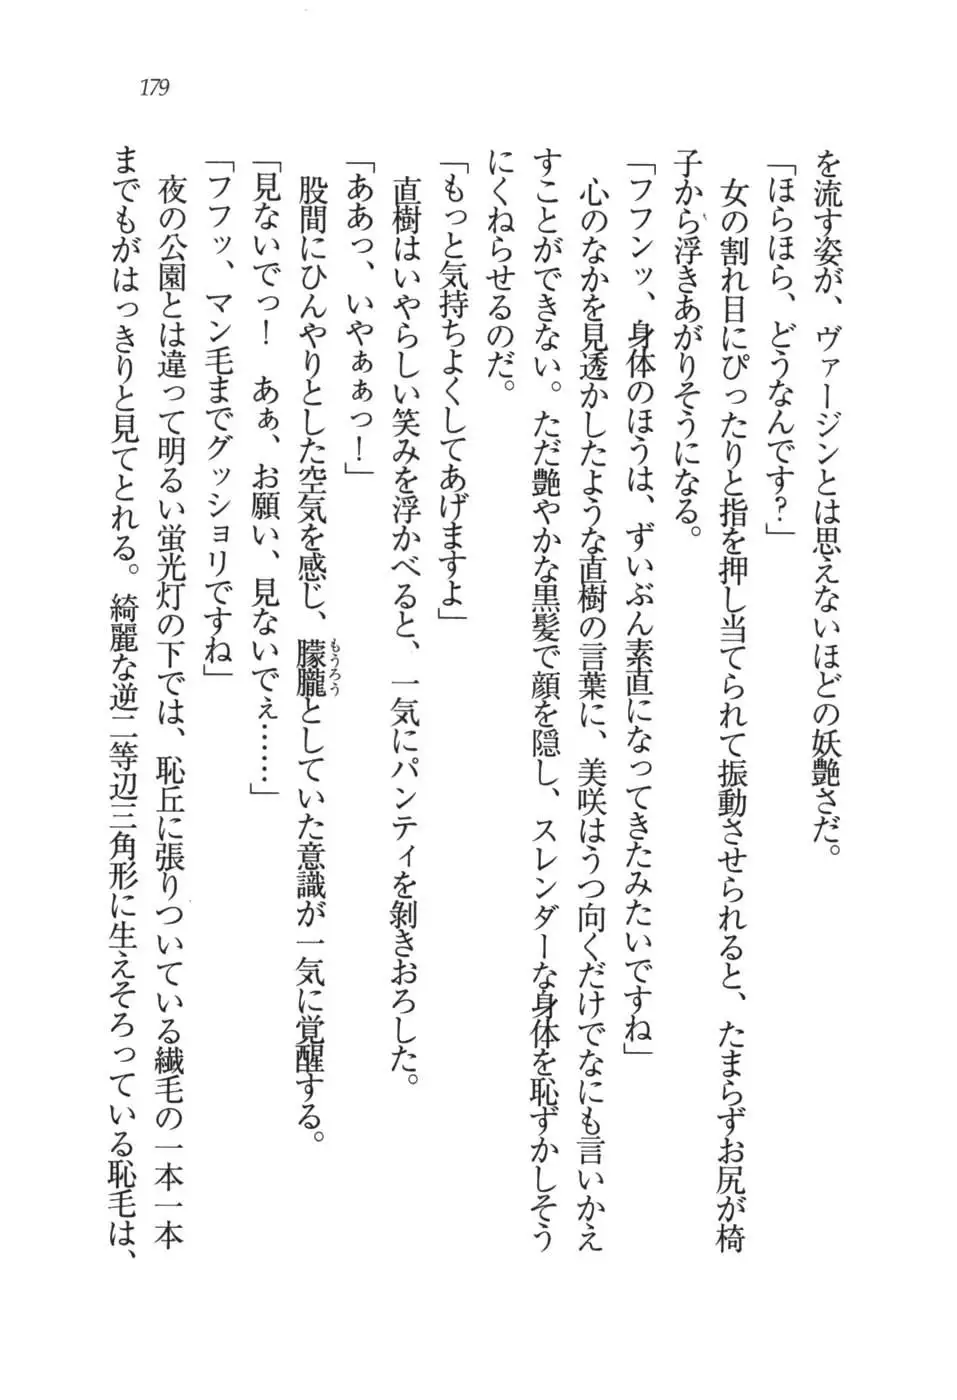 179
を流す姿が、ヴァージンとは思えないほどの妖艶さだ。
「ほらほら、どうなんです?」
女の割れ目にぴったりと指を押し当てられて振動させられると、たまらずお尻が椅
子から浮きあがりそうになる。
「フフンッ、身体のほうは、ずいぶん素直になってきたみたいですね」
心のなかを見透かしたような直樹の言葉に、美咲はうつ向くだけでなにも言いかえ
すことができない。ただ艶やかな黒髪で顔を隠し、スレンダーな身体を恥ずかしそう
にくねらせるのだ。
「もっと気持ちよくしてあげますよ」
直樹はいやらしい笑みを浮かべると、一気にパンティを剝きおろした。
「ああっ、いやぁぁっ!」
股間にひんやりとした空気を感じ、朦朧もうろうとしていた意識が一気に覚醒する。
「見ないでっ! あぁ、お願い、見ないでぇ……」
「フフッ、マン毛までグッショリですね」
夜の公園とは違って明るい蛍光灯の下では、恥丘に張りついている繊毛の一本一本
までもがはっきりと見てとれる。綺麗な逆二等辺三角形に生えそろっている恥毛は、